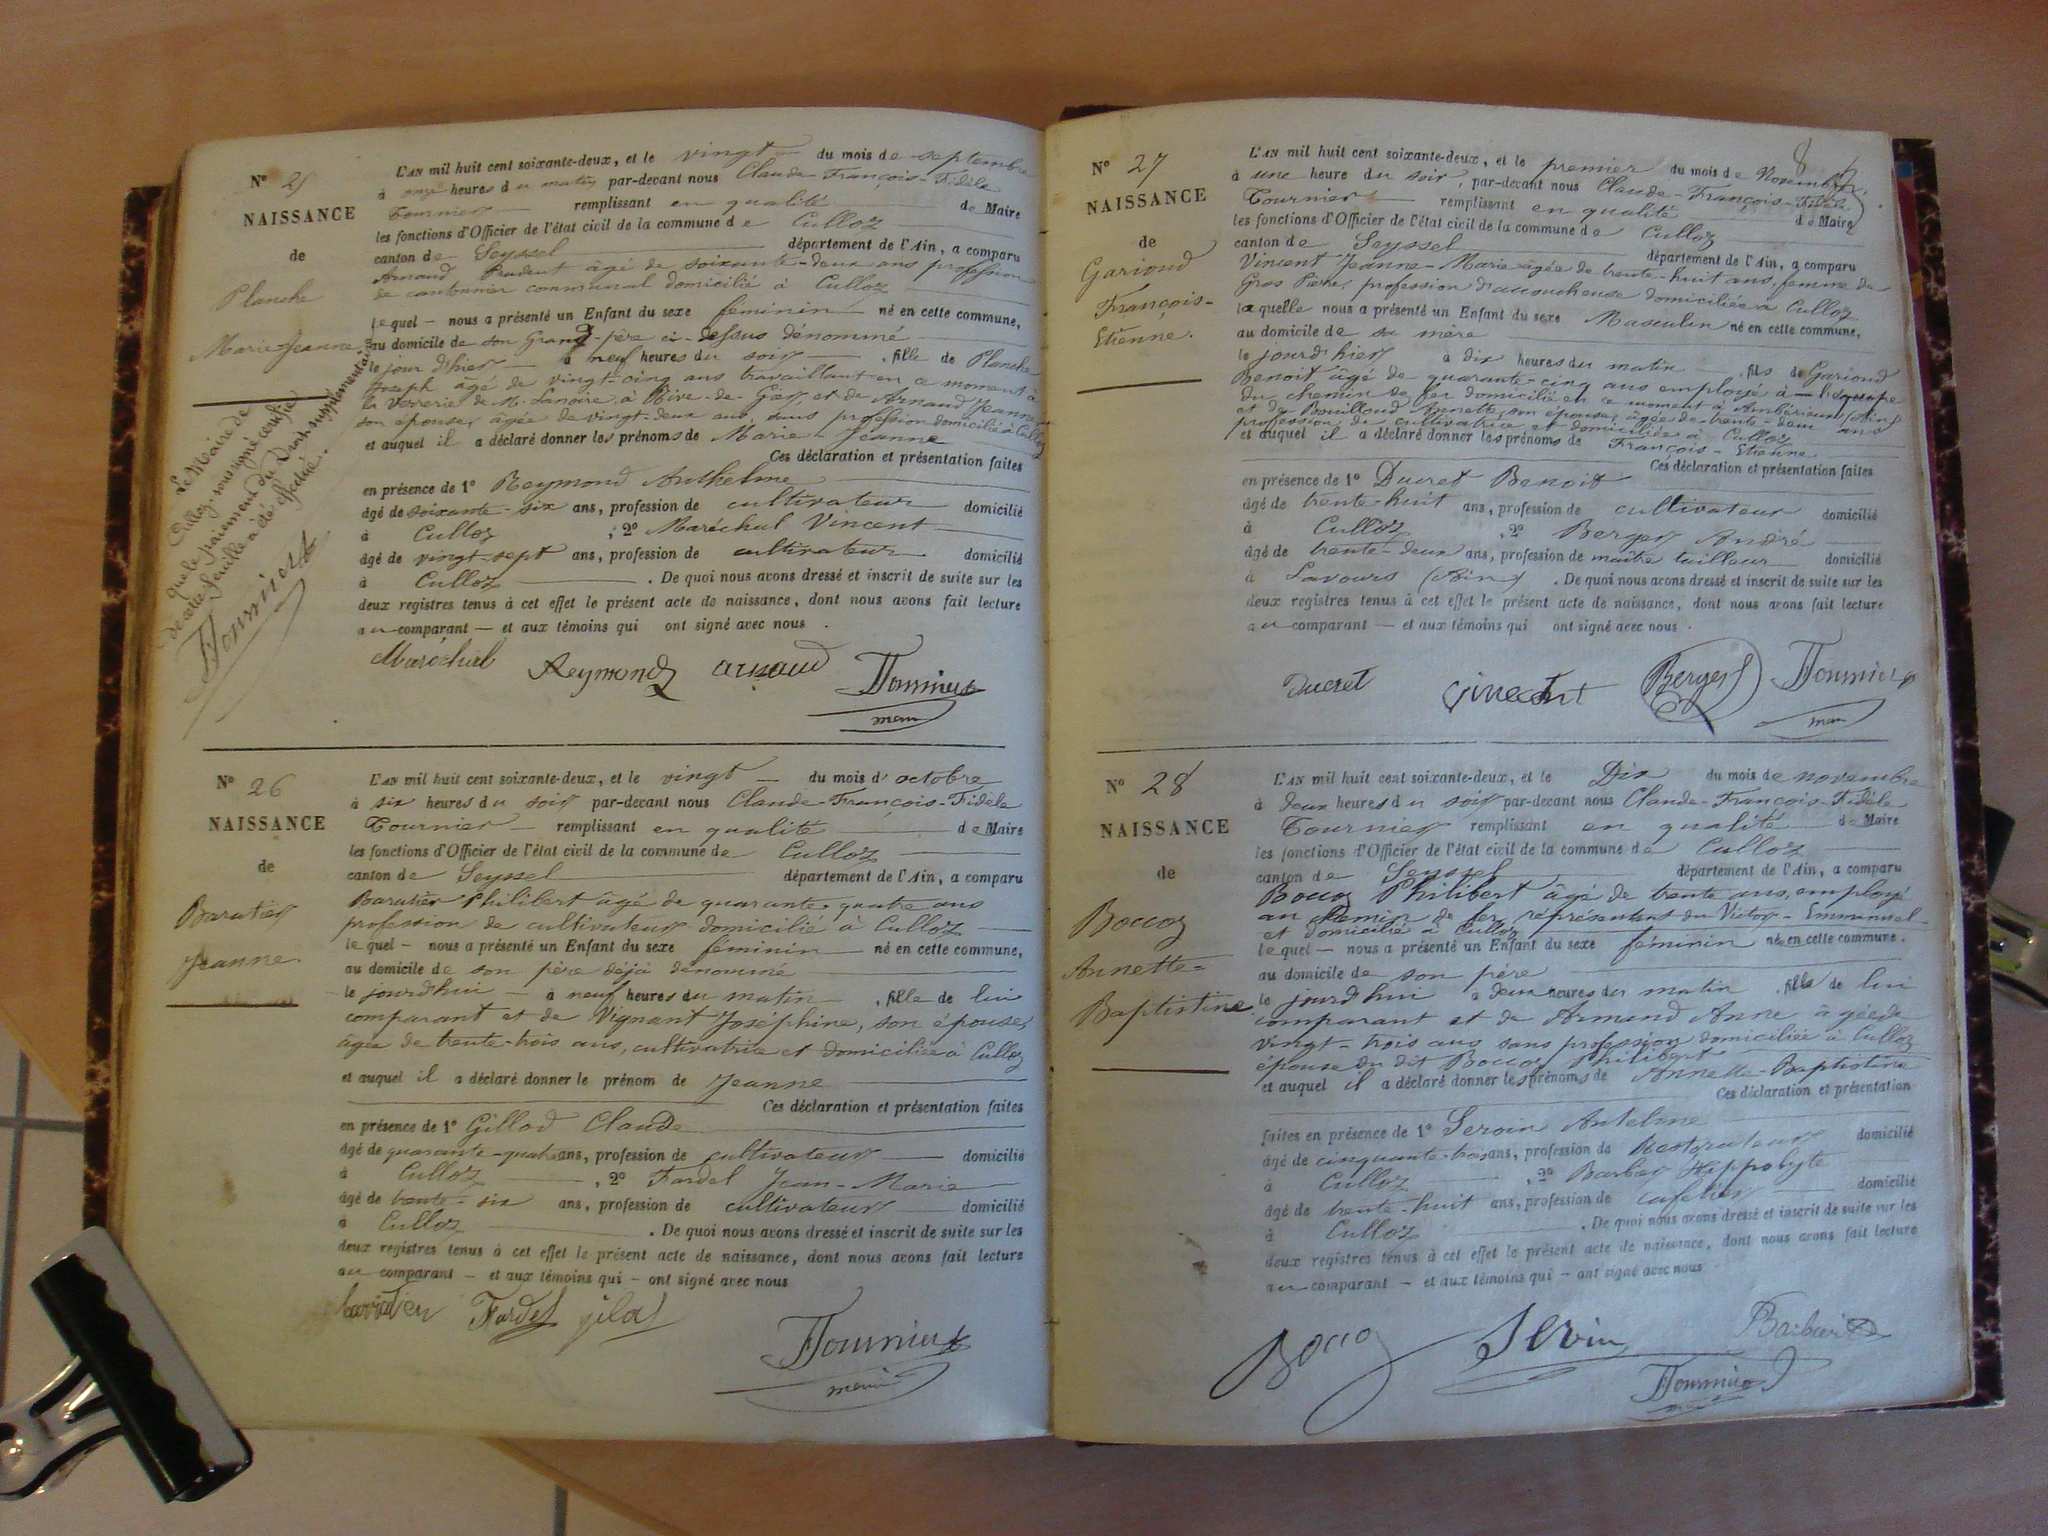 N° 25
NAISSANCE
de
Planche
Marie-Jeanne
Le Maire de
Culloz, soussigné certifie
que le paiement du Droit supplémentaire
de cette feuille a été effectué.
FTournier
L'AN mil huit cent soixante-deux, et le vingt du mois de septembre
à onze heures du matin par-devant nous Claude-François-Fidèle
Tournier remplissant en qualité de Maire
les fonctions d'Officier de l'état civil de la commune de Culloz
canton de Seyssel département de l'Ain, a comparu
Arnaud Prudent âgé de soixante-deux ans profession
de cantonnier communal domicilié à Culloz
lequel — nous a présenté un Enfant du sexe féminin né en cette commune,
au domicile de son Grand-père ci-dessus dénommé
le jour d'hier à neuf heures du soir , fille de Planche
Joseph âgé de vingt-cinq ans travaillant en ce moment à
la verrerie de M. à Rive-de-Gier et de Arnaud Jeanne
son épouse, âgée de vingt-deux ans, sans profession domiciliée à Culloz
et auquel il a déclaré donner les prénoms de Marie-Jeanne
Ces déclaration et présentation faites
en présence de 1° Reymond Anthelme
âgé de soixante-six ans, profession de cultivateur domicilié
à Culloz , 2° Maréchal Vincent
âgé de vingt-sept ans, profession de cultivateur domicilié
à Culloz . De quoi nous avons dressé et inscrit de suite sur les
deux registres tenus à cet effet le présent acte de naissance, dont nous avons fait lecture
au comparant — et aux témoins qui ont signé avec nous .
Maréchal Reymond arnaud FTournier
maire
N° 26
NAISSANCE
de
Baratier
Jeanne
L'AN mil huit cent soixante-deux, et le vingt du mois d'octobre
à six heures du soir par-devant nous Claude-François-Fidèle
Tournier remplissant en qualité de Maire
les fonctions d'Officier de l'état civil de la commune de Culloz
canton de Seyssel département de l'Ain, a comparu
Baratier Philibert âgé de quarante-quatre ans
profession de cultivateur domicilié à Culloz
lequel — nous a présenté un Enfant du sexe féminin né en cette commune,
au domicile de son père déjà dénommé
le jourd'hui à neuf heures du matin , fille de lui
comparant et de Vignant Joséphine, son épouse,
âgée de trente-trois ans, cultivatrice et domiciliée à Culloz
et auquel il a déclaré donner le prénom de Jeanne
Ces déclaration et présentation faites
en présence de 1° Gillod Claude
âgé de quarante-quatre ans, profession de cultivateur domicilié
à Culloz , 2° Fardel Jean-Marie
âgé de trente-six ans, profession de cultivateur domicilié
à Culloz . De quoi nous avons dressé et inscrit de suite sur les
deux registres tenus à cet effet le présent acte de naissance, dont nous avons fait lecture
au comparant — et aux témoins qui — ont signé avec nous
Fardel FTournier
maire
8
N° 27
NAISSANCE
de
Gariond
François-
Etienne.
L'AN mil huit cent soixante-deux, et le premier du mois de Novembre,
à une heure du soir, par-devant nous Claude-François-Fidèle
Tournier remplissant en qualité de Maire
les fonctions d'Officier de l'état civil de la commune de Culloz
canton de Seyssel département de l'Ain, a comparu
Vincent Jeanne-Marie âgée de trente-huit ans, femme de
Gros Pierre, profession d'accoucheuse domiciliée à Culloz
laquelle nous a présenté un Enfant du sexe Masculin né en cette commune,
au domicile de sa mère
le jourd'hier à dix heures du matin , fils de Gariond
Benoit âgé de quarante-cinq ans employé à l'équipe
du chemin de fer domicilié en ce moment à Ambérieux (Ain)
et de Bouilloud Annette, son épouse, âgée de trente-deux ans
profession de cultivatrice et domiciliée à Culloz
et auquel il a déclaré donner les prénoms de François-Etienne
Ces déclaration et présentation faites
en présence de 1° Ducret Benoit
âgé de trente-huit ans, profession de cultivateur domicilié
à Culloz , 2° Berger André
âgé de trente-deux ans, profession de maître tailleur domicilié
à Lavours (Ain) . De quoi nous avons dressé et inscrit de suite sur les
deux registres tenus à cet effet le présent acte de naissance, dont nous avons fait lecture
au comparant — et aux témoins qui ont signé avec nous .
Ducret vincent Berger FTournier
maire
N° 28
NAISSANCE
de
Boccoz
Annette-
Baptistine
L'AN mil huit cent soixante-deux, et le Dix du mois de novembre
à deux heures du soir par-devant nous Claude-François-Fidèle
Tournier remplissant en qualité de Maire
les fonctions d'Officier de l'état civil de la commune de Culloz
canton de Seyssel département de l'Ain, a comparu
Boccoz Philibert âgé de trente ans, employé
au chemin de fer, représentant du Victor-Emmanuel
et domicilié à Culloz
lequel — nous a présenté un Enfant du sexe féminin né en cette commune.
au domicile de son père
le jourd'hui à deux heures du matin , fille de lui
comparant et de Armand Anne âgée de
vingt-trois ans sans profession domiciliée à Culloz
épouse du dit Boccoz Philibert
et auquel il a déclaré donner les prénoms de Annette-Baptistine
Ces déclaration et présentation
faites en présence de 1° Antelme
âgé de cinquante-trois ans, profession de Restaurateur domicilié
à Culloz , 2° Barbier Hippolyte
âgé de trente-huit ans, profession de cafetier domicilié
à Culloz . De quoi nous avons dressé et inscrit de suite sur les
deux registres tenus à cet effet le présent acte de naissance, dont nous avons fait lecture
au comparant — et aux témoins qui — ont signé avec nous
Boccoz Servin Barbier
FTournier